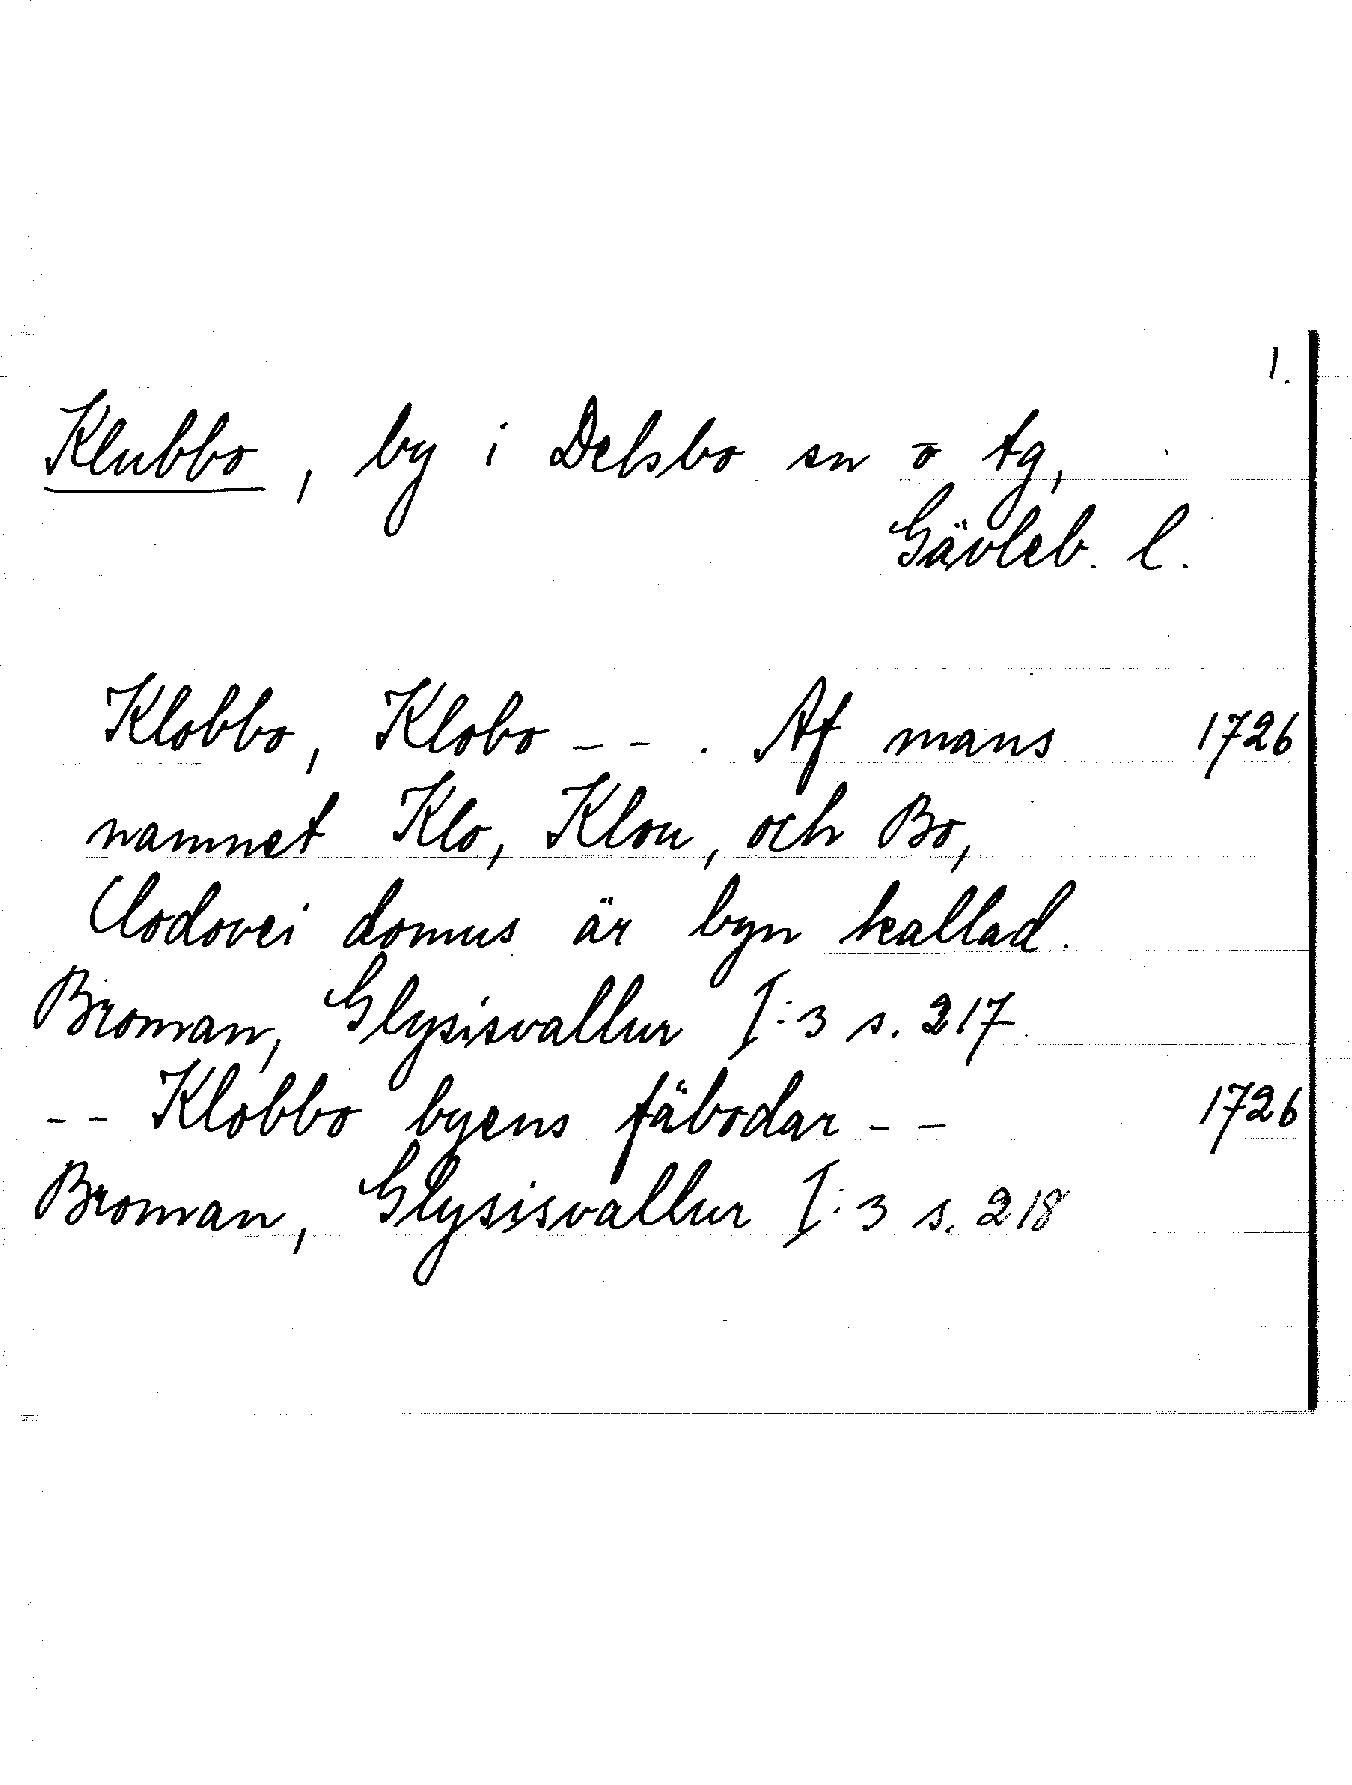 1.
Klubbo, by i Delsbo sn o tg,
Gävleb. l.
Klobbo, Klobo -- . Af mans 1726
namnet Klo, Klou, och Bo,
Clodovei domus är byn kallad.
Broman, Glysisvallur I:3 s. 217
-- Klobbo byens fäbodar -- 1726
Broman, Glysisvallur I:3 s. 218